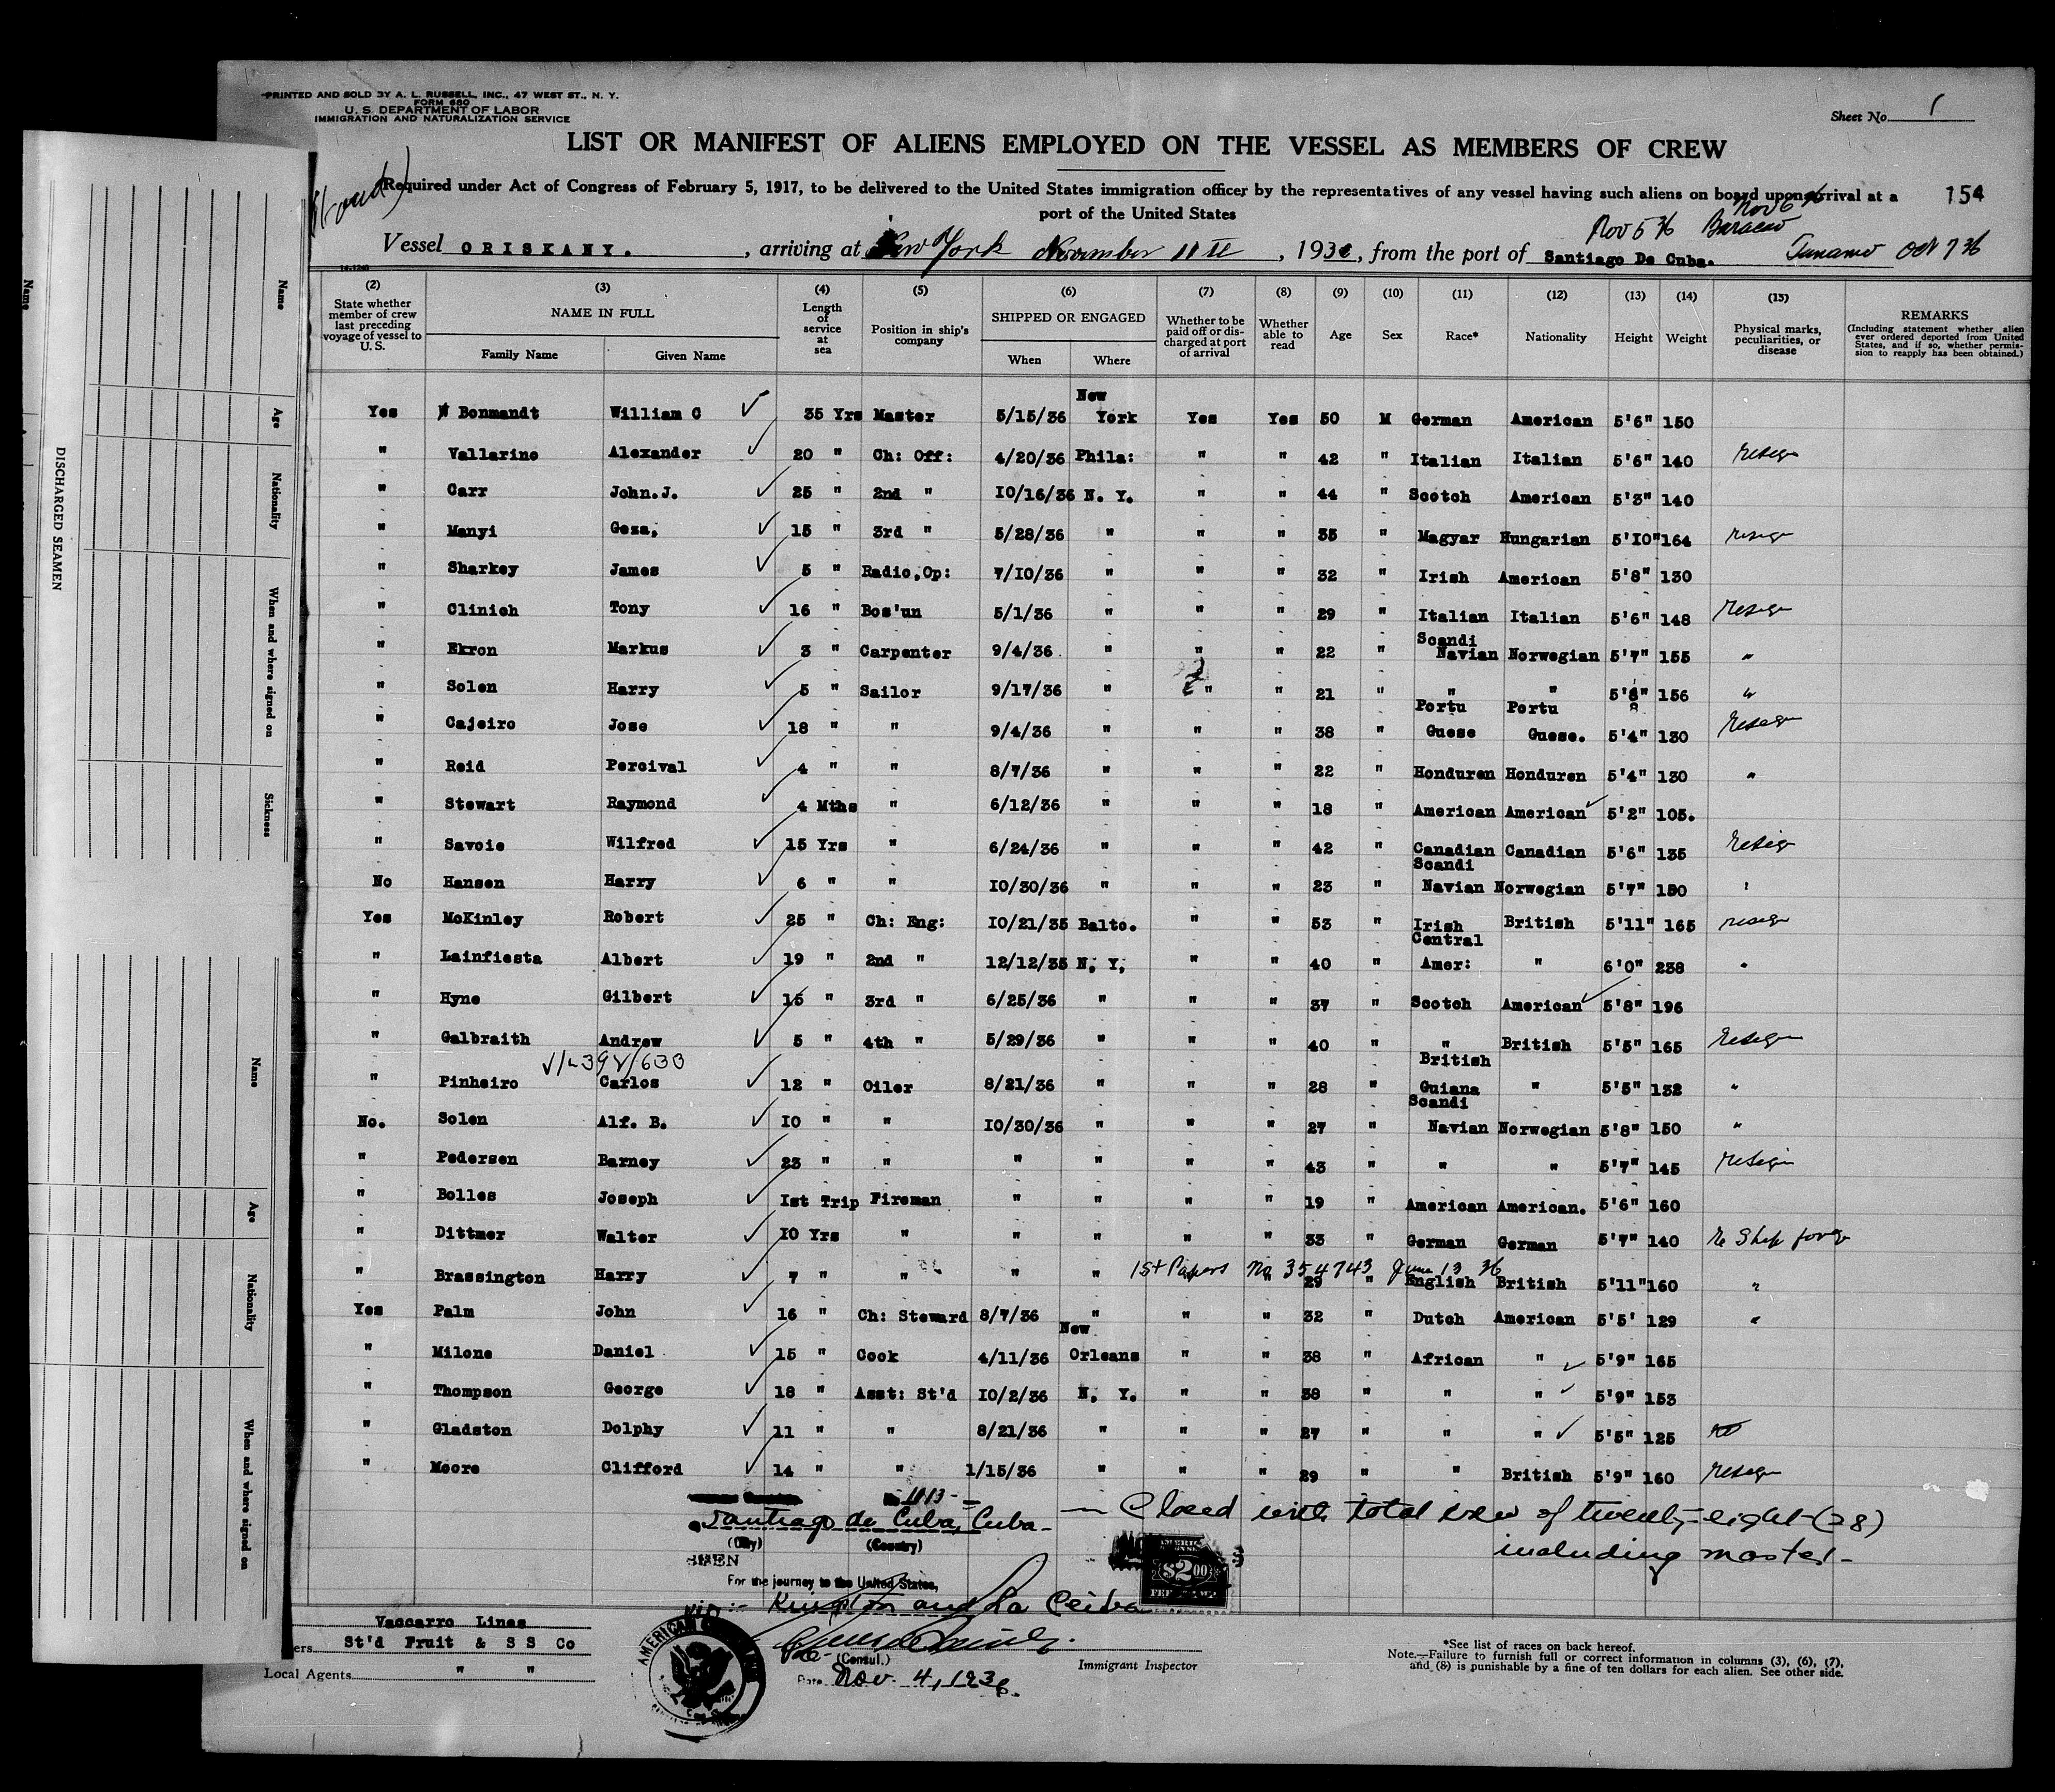 PRINTED AND SOLD BY A. L. RUSSELL, INC., 47 WEST ST., N. Y.
FORM 680
U. S. DEPARTMENT OF LABOR
IMMIGRATION AND NATURALIZATION SERVICE
Sheet No. 1
LIST OR MANIFEST OF ALIENS EMPLOYED ON THE VESSEL AS MEMBERS OF CREW
Required under Act of Congress of February 5, 1917, to be delivered to the United States immigration officer by the representatives of any vessel having such aliens on board upon arrival at a
port of the United States
154
Nov 5 36
Nov 6
Vessel ORISKANY. , arriving at New York November 11 , 1936, from the port of Santiago De Cuba.
(2) (3) (4) (5) (6) (7) (8) (9) (10) (11) (12) (13) (14) (15)
State whether member of crew last preceding voyage of vessel to U. S.
NAME IN FULL
Family Name Given Name
Length of service at sea
Position in ship's company
SHIPPED OR ENGAGED
When Where
Whether to be paid off or discharged at port of arrival
Whether able to read
Age Sex Race* Nationality Height Weight
Physical marks, peculiarities, or disease
REMARKS
(Including statement whether alien ever ordered deported from United States, and if so, whether permission to reapply has been obtained.)
Yes Bonmandt William C 35 Yrs Master 5/15/36 New York Yes Yes 50 M German American 5'6" 150
" Vallarino Alexander 20 " Ch: Off: 4/20/36 Phila: " " 42 " Italian Italian 5'6" 140
" Carr John.J. 25 " 2nd " 10/16/36 N. Y. " " 44 " Scotch American 5'3" 140
" Manyi Geza, 15 " 3rd " 5/28/36 " " " 35 " Magyar Hungarian 5'10" 164
" Sharkey James 5 " Radio,Op: 7/10/36 " " " 32 " Irish American 5'8" 130
" Clinich Tony 16 " Bos'un 5/1/36 " " " 29 " Italian Italian 5'6" 148
" Ekron Markus 3 " Carpenter 9/4/36 " " " 22 " Scandi Navian Norwegian 5'7" 155 "
" Solen Harry 5 " Sailor 9/17/36 " " " 21 " " " 5'8" 156 "
" Cajeiro Jose 18 " " 9/4/36 " " " 38 " Portu Guese Portu Guese. 5'4" 130
" Reid Percival 4 " " 8/7/36 " " " 22 " Honduren Honduren 5'4" 130 "
" Stewart Raymond 4 Mths " 6/12/36 " " " 18 " American American 5'2" 105.
" Savoie Wilfred 15 Yrs " 6/24/36 " " " 42 " Canadian Canadian 5'6" 135
No Hansen Harry 6 " " 10/30/36 " " " 23 " Scandi Navian Norwegian 5'7" 150
Yes McKinley Robert 25 " Ch: Eng: 10/21/35 Balto. " " 53 " Irish British 5'11" 165
" Lainfiesta Albert 19 " 2nd " 12/12/35 N, Y, " " 40 " Central Amer: " 6'0" 238 "
" Hyne Gilbert 15 " 3rd " 6/25/36 " " " 37 " Scotch American 5'8" 196
" Galbraith Andrew 5 " 4th " 5/29/36 " " " 40 " " British 5'5" 165
" Pinheiro Carlos 12 " Oiler 8/21/36 " " " 28 " British Guiana " 5'5" 132 "
No. Solen Alf. B. 10 " " 10/30/36 " " " 27 " Scandi Navian Norwegian 5'8" 150 "
" Pedersen Barney 23 " " " " " " 43 " " " 5'7" 145
" Bolles Joseph 1st Trip Fireman " " " " 19 " American American. 5'6" 160
" Dittmer Walter 10 Yrs " " " " " 33 " German German 5'7" 140
1st Papers No 354743 June 13 36
" Brassington Harry 7 " " " " " 29 " English British 5'11" 160
Yes Palm John 16 " Ch: Steward 8/7/36 " " " 32 " Dutch American 5'5' 129
" Milone Daniel 15 " Cook 4/11/36 New Orleans " " 38 " African " 5'9" 165
" Thompson George 18 " Asst: St'd 10/2/36 N, Y. " " 38 " " " 5'9" 153
" Gladston Dolphy 11 " " 8/21/36 " " " 27 " " " 5'5" 125
" Moore Clifford 14 " " 1/15/36 " " " 29 " " British 5'9" 160
1013
Santiago de Cuba, Cuba
(City) (Country)
Closed with total crew of twenty-eight (28)
including master
For the journey to the United States,
via:- Kingston and La Ceiba
$2.00
(Consul.)
Date Nov. 4, 1936.
Immigrant Inspector
Vaccarro Lines
St'd Fruit & S S Co
Local Agents " "
*See list of races on back hereof.
Note.—Failure to furnish full or correct information in columns (3), (6), (7),
and (8) is punishable by a fine of ten dollars for each alien. See other side.
DISCHARGED SEAMEN
Name Age Nationality When and where signed on Sickness
Name Age Nationality When and where signed on
Name